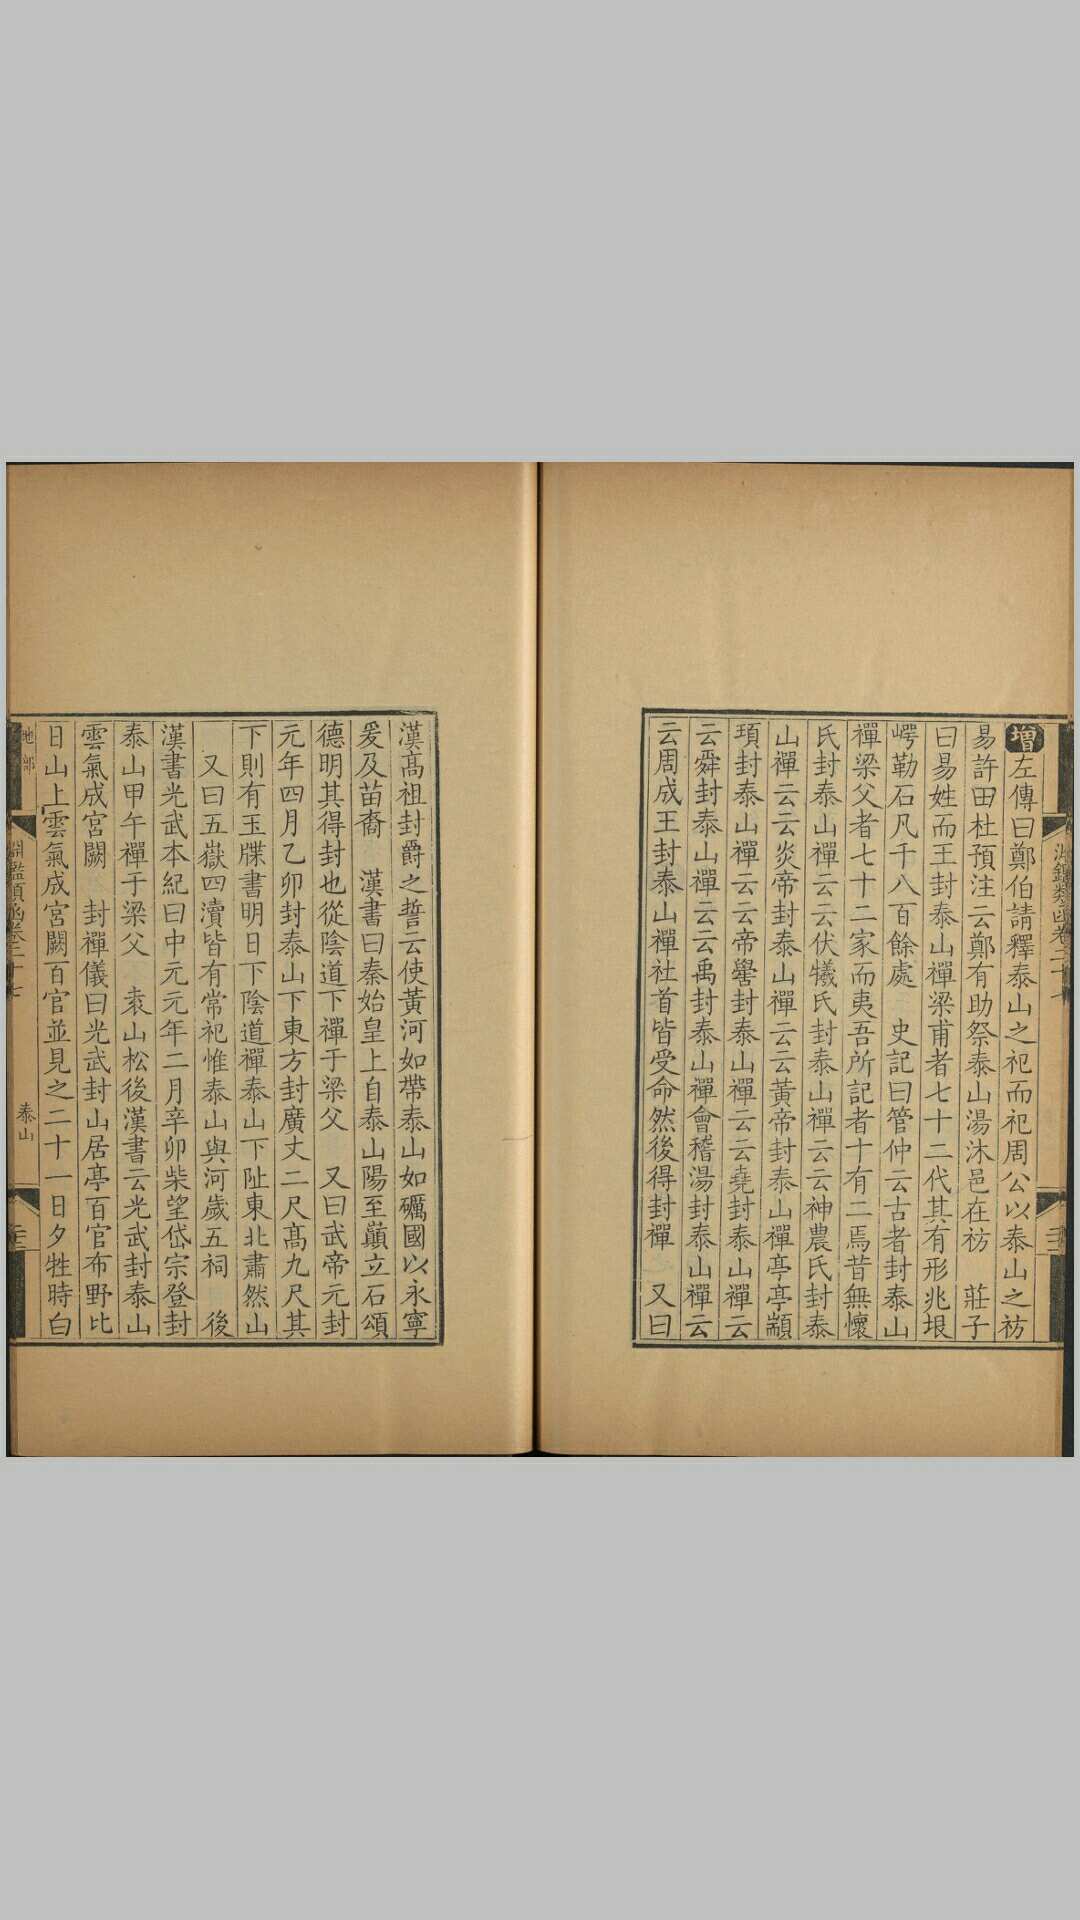 增左傳曰鄭伯請釋泰山之祀而祀周公以泰山之祊
易許田杜預注云鄭有助祭泰山湯沐邑在祊　莊子
曰易姓而王封泰山禪梁甫者七十二代其有形兆垠
崿勒石凡千八百餘處　史記曰管仲云古者封泰山
禪梁父者七十二家而夷吾所記者十有二焉昔無懷
氏封泰山禪云云伏犧氏封泰山禪云云神農氏封泰
山禪云云炎帝封泰山禪云云黃帝封泰山禪亭亭顓
頊封泰山禪云云帝嚳封泰山禪云云堯封泰山禪云
云舜封泰山禪云云禹封泰山禪會稽湯封泰山禪云
云周成王封泰山禪社首皆受命然後得封禪　又曰
漢高祖封爵之誓云使黃河如帶泰山如礪國以永寧
爰及苗裔　漢書曰秦始皇上自泰山陽至巔立石頌
德明其得封也從陰道下禪于梁父　又曰武帝元封
元年四月乙卯封泰山下東方封廣丈二尺高九尺其
下則有玉牒書明日下陰道禪泰山下阯東北肅然山
又曰五嶽四瀆皆有常祀惟泰山與河歲五祠　後
漢書光武本紀曰中元元年二月辛卯柴望岱宗登封
泰山甲午禪于梁父　袁山松後漢書云光武封泰山
雲氣成宮闕　封禪儀曰光武封山居亭百官布野比
日山上雲氣成宮闕百官並見之二十一日夕牲時白
地部
淵鑑類函卷二十七
泰山